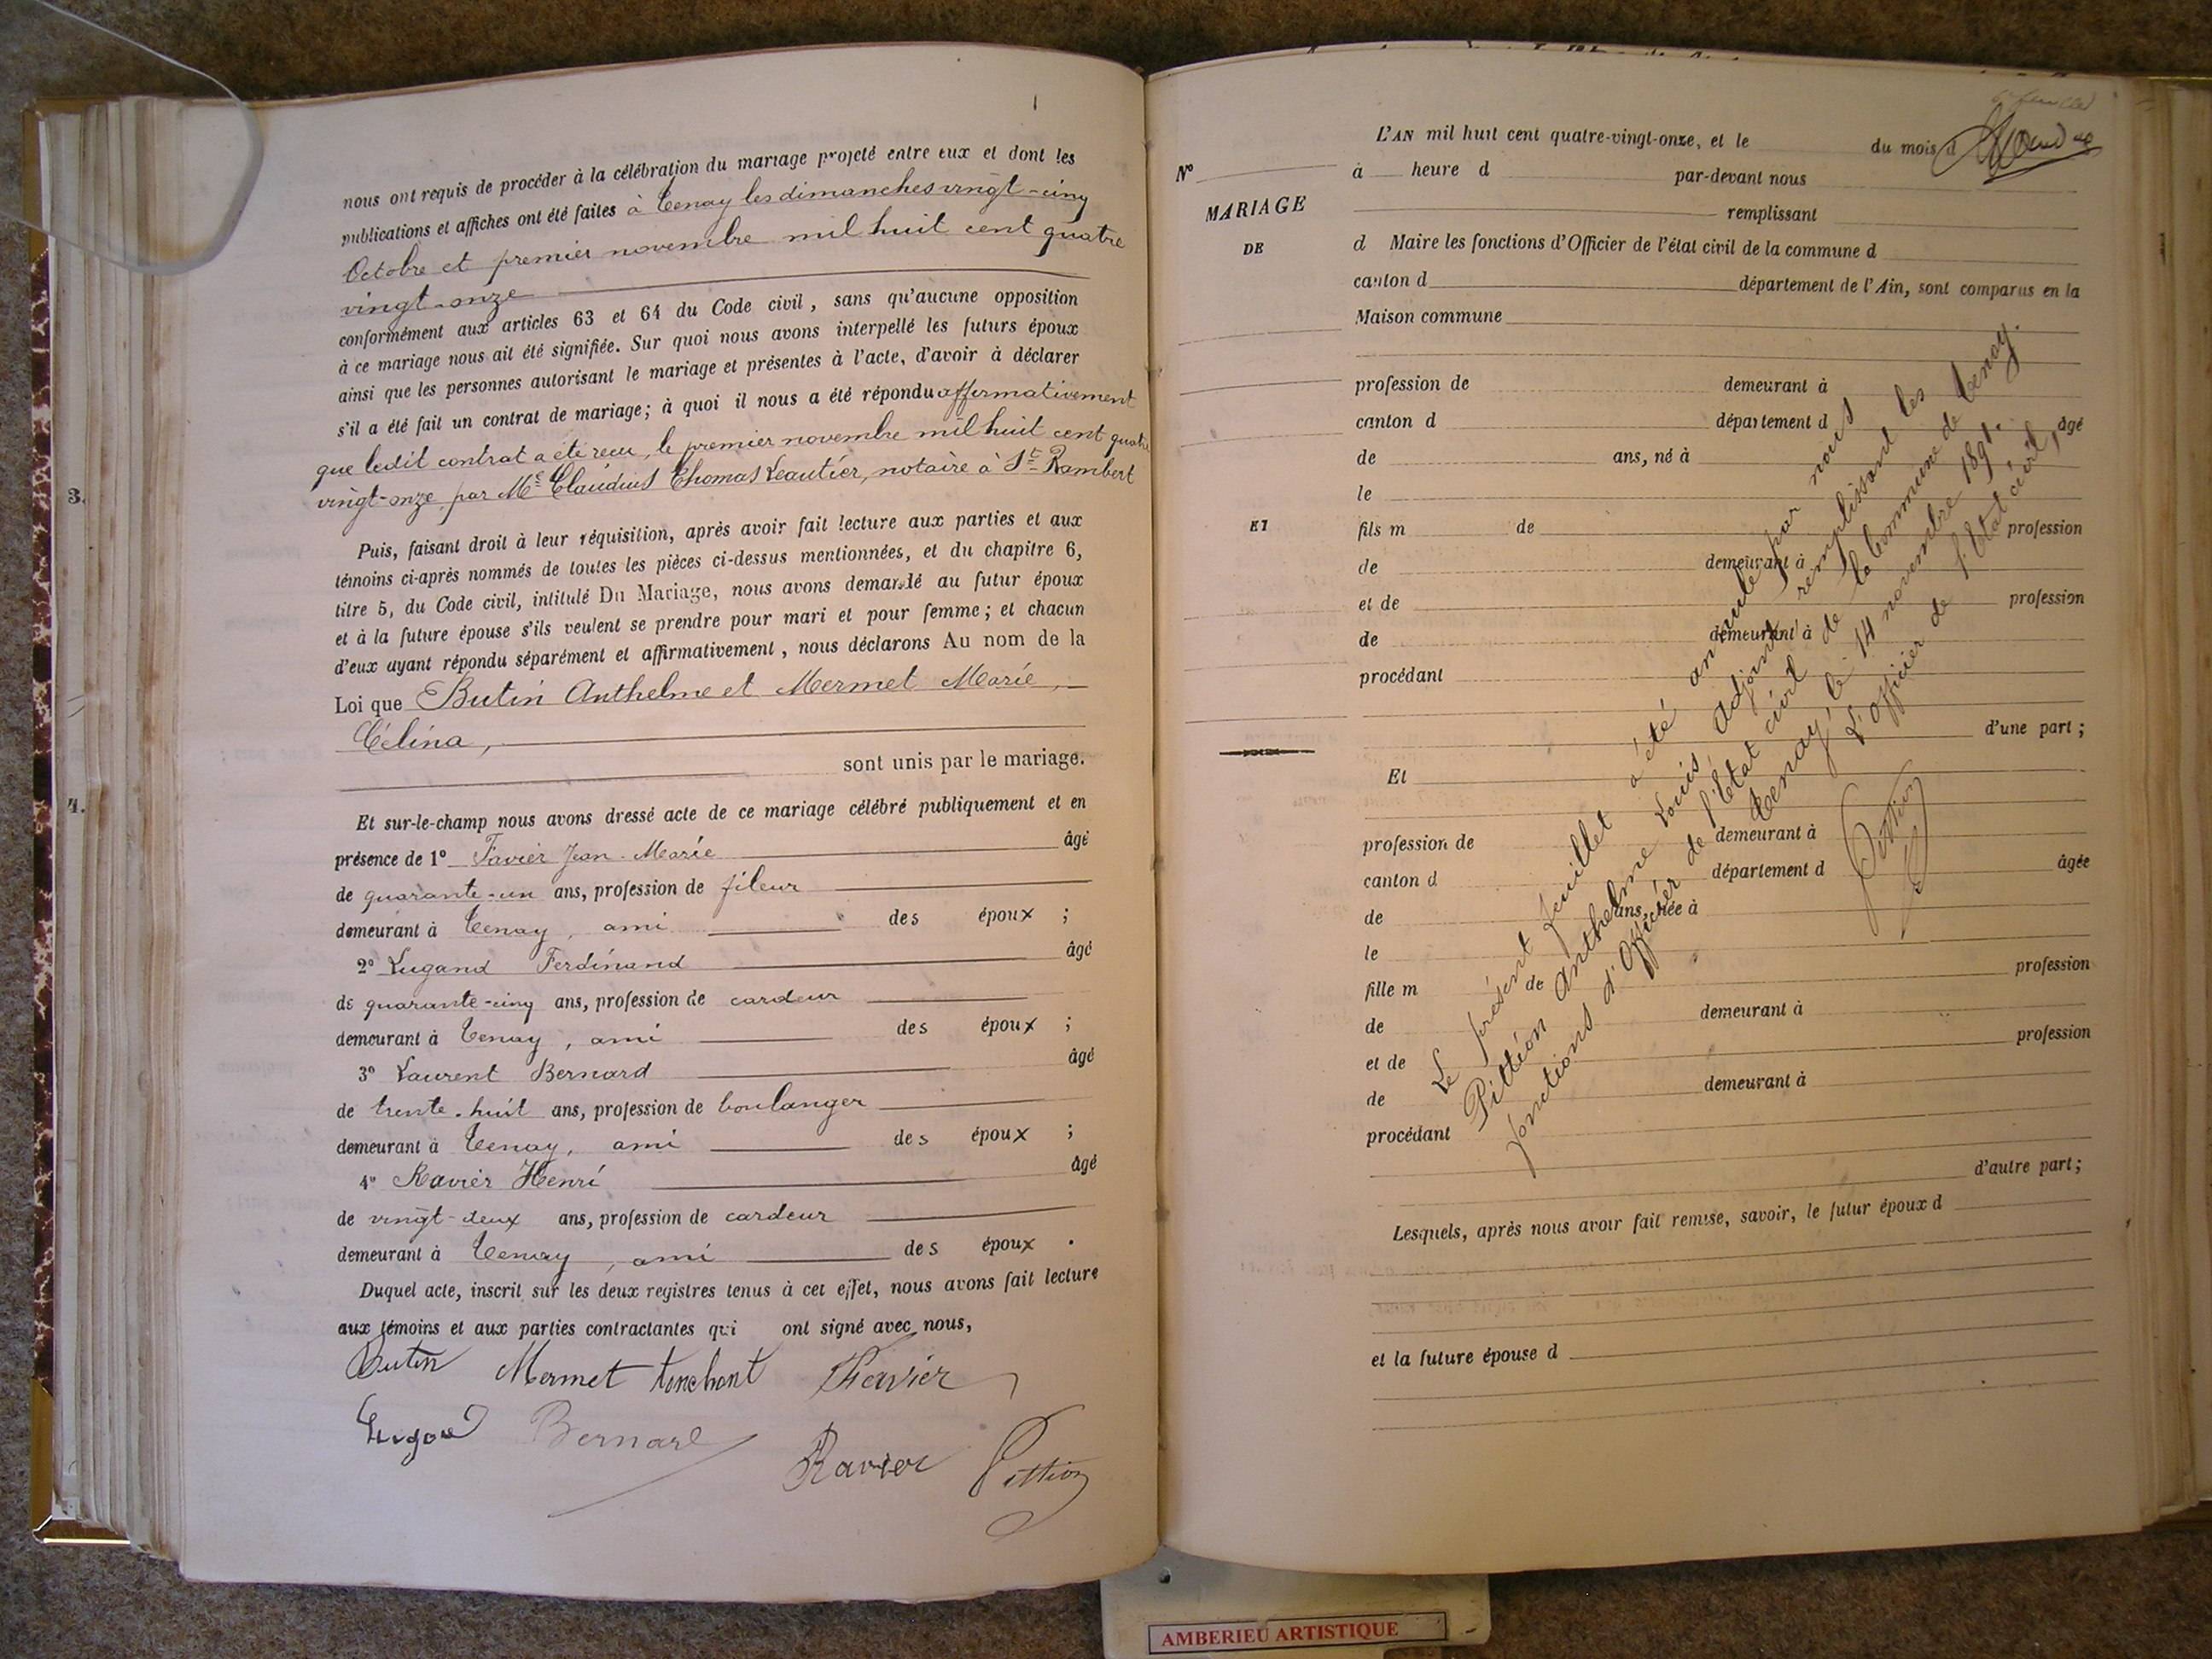 nous ont requis de procéder à la célébration du mariage projeté entre eux et dont les
publications et affiches ont été faites à Tenay les dimanches vingt-cinq
Octobre et premier novembre mil huit cent quatre
vingt-onze
conformément aux articles 63 et 64 du Code civil, sans qu'aucune opposition
à ce mariage nous ait été signifiée. Sur quoi nous avons interpellé les futurs époux
ainsi que les personnes autorisant le mariage et présentes à l'acte, d'avoir à déclarer
s'il a été fait un contrat de mariage; à quoi il nous a été répondu affirmativement
que ledit contrat a été reçu, le premier novembre mil huit cent quatre
vingt-onze, par Me Claudius Thomas Leautier, notaire à St Rambert
3.
Puis, faisant droit à leur réquisition, après avoir fait lecture aux parties et aux
témoins ci-après nommés de toutes les pièces ci-dessus mentionnées, et du chapitre 6,
titre 5, du Code civil, intitulé Du Mariage, nous avons demandé au futur époux
et à la future épouse s'ils veulent se prendre pour mari et pour femme; et chacun
d'eux ayant répondu séparément et affirmativement, nous déclarons Au nom de la
Loi que Butin Anthelme et Mermet Marie,
Célina,
sont unis par le mariage.
4.
Et sur-le-champ nous avons dressé acte de ce mariage célébré publiquement et en
présence de 1° Favier Jean-Marie âgé
de quarante-un ans, profession de fileur
demeurant à Tenay, ami des époux ;
2° Lugand Ferdinand âgé
de quarante-cinq ans, profession de cardeur
demeurant à Tenay, ami des époux ;
3° Laurent Bernard âgé
de trente-huit ans, profession de boulanger
demeurant à Tenay, ami des époux ;
4° Ravier Henri âgé
de vingt-deux ans, profession de cardeur
demeurant à Tenay, ami des époux .
Duquel acte, inscrit sur les deux registres tenus à cet effet, nous avons fait lecture
aux témoins et aux parties contractantes qui ont signé avec nous,
Butin Mermet tonchant Favier
Lugand Bernard
Ravier Pittion
L'AN mil huit cent quatre-vingt-onze, et le du mois d
N° à heure d par-devant nous
MARIAGE remplissant
DE d Maire les fonctions d'Officier de l'état civil de la commune d
canton d département de l'Ain, sont comparus en la
Maison commune
profession de demeurant à
canton d département d âgé
de ans, né à
le
ET fils m de profession
de demeurant à
et de profession
de demeurant à
procédant
d'une part ;
Et
profession de demeurant à
canton d département d âgée
de ans, née à
le
fille m de profession
de demeurant à
et de profession
de demeurant à
procédant
d'autre part ;
Le présent feuillet a été annulé par nous
Pittion Anthelme Louis Adjoint, remplissant les
fonctions d'Officier de l'Etat civil de la commune de Tenay.
Tenay, le 14 novembre 1891.
L'officier de l'Etat civil,
Pittion
Lesquels, après nous avoir fait remise, savoir, le futur époux d
et la future épouse d
AMBERIEU ARTISTIQUE